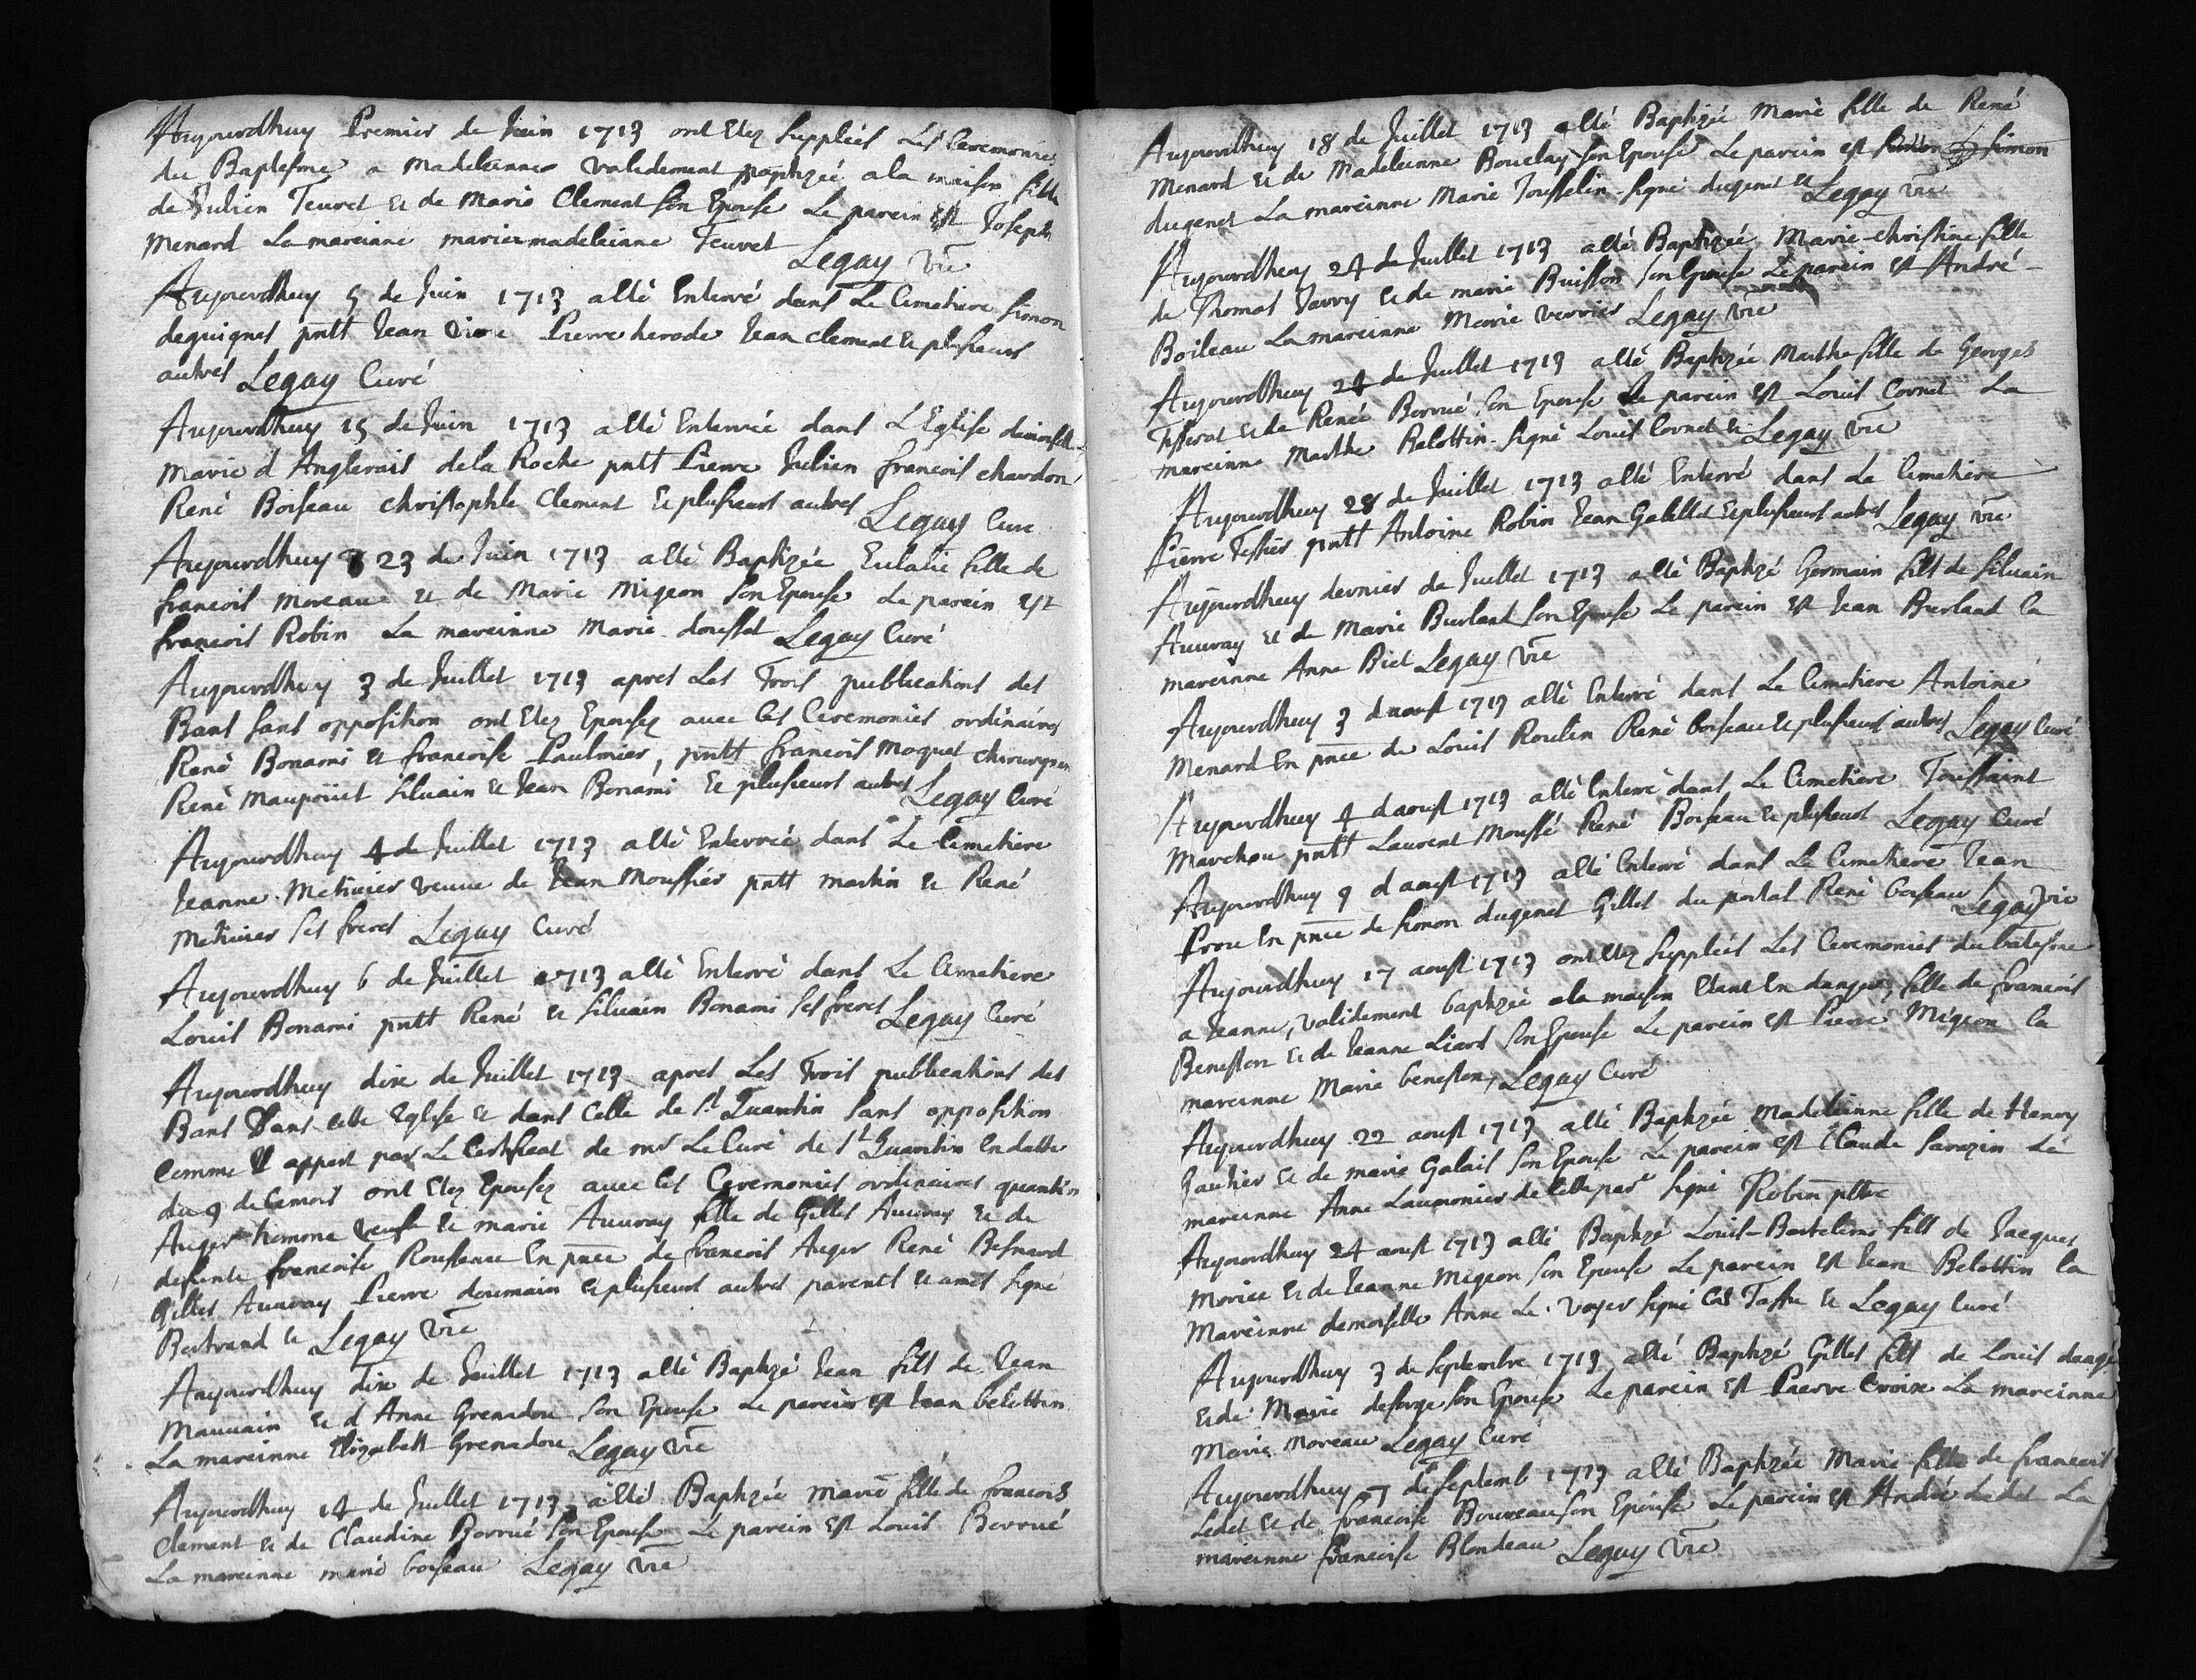 Aujourdhuy Premier de Juin 1713 ont Etez Suppleés Les Ceremonies
du Baptesme a Madeleinne validement baptizée a la maison fille
de Julien Teuret et de Marie Clement son Epouse Le parein est Joseph
Menard La mareinne marie madeleinne Teuret Legay Vie
Aujourdhuy 5 de Juin 1713 a esté Enterré dans Le Cimetiere Simon
deguignet pntt Jean Pierre herode Jean Clement et plusieurs
autres Legay Curé
Aujourdhuy 15 de Juin 1713 a esté Enterrée dans L'Eglise demoiselle
Marie d'Anglerais de la Roche pntt Pierre Julien francois chardon
René Boiseau christophle Clement et plusieurs autres Legay Curé
Aujourdhuy 23 de Juin 1713 a esté Baptizée Eulalie fille de
francois Moreau et de Marie Migeon son Epouse Le parein est
francois Robin La mareinne Marie dousset Legay Curé
Aujourdhuy 3 de Juillet 1713 apres Les Trois publications des
Bans sans opposition ont Etez Epousez avec les Ceremonies ordinaires
René Bonami et francoise Paulmier, pntt francois Moquet chirurgien
René Maupoüet Siluain et Jean Bonami et plusieurs autres Legay Curé
Aujourdhuy 4 de Juillet 1713 a esté Enterrée dans Le Cimetiere
Jeanne Metivier veuue de Jean Moussier pntt martin et René
Metivier ses freres Legay Curé
Aujourdhuy 6 de Juillet 1713 a esté Enterré dans Le Cimetiere
Louis Bonami pntt René et Siluain Bonami ses freres Legay Curé
Aujourdhuy dixe de Juillet 1713 apres Les Trois publications des
Bans Dans cette Eglise et dans Celle de St Quantin sans opposition
Comme Il appert par Le Certificat de mr Le Curé de St Quantin En datte
du 9 de Ce mois ont Etez Epousez avec les Ceremonies ordinaires quantin
Auger homme veuf et marie Auuray fille de Gilles Auuray et de
defunte francoise Rousseau En pnce de francois Auger René Besnard
Gilles Auuray Pierre doumain et plusieurs autres parents et amis signé
Bertrand et Legay Vie
Aujourdhuy dixe de Juillet 1713 a esté Baptizé Jean fils de Jean
Mauuain et d'Anne Grenadou son Epouse Le parein est Jean belottin
La mareinne Elizabeth Grenadou Legay Vie
Aujourdhuy 14 de Juillet 1713 a esté Baptizée marie fille de francois
Clement et de Claudine Borrué son Epouse Le parein est Louis Borrué
La mareinne marie boiseau Legay Vie
Aujourdhuy 18 de Juillet 1713 a esté Baptizée Marie fille de René
Menard et de Madeleinne Bouclay son Epouse Le parein est Simon
dugenet La mareinne Marie Jousselin signé dugenet et Legay Vie
Aujourdhuy 24 de Juillet 1713 a esté Baptizée Marie-christine fille
de Thomas Jarry et de marie Buisson son Epouse Le parein est André
Boileau La mareinne Marie verrier Legay Vie
Aujourdhuy 24 de Juillet 1713 a esté Baptizée Marthe fille de Georges
Tisserot et de Renée Borrué son Epouse Le parein est Louis Cornet La
mareinne Marthe Belottin signé Louis Cornet et Legay Vie
Aujourdhuy 28 de Juillet 1713 a esté Enterré dans Le Cimetiere
Pierre Tessier pntt Antoine Robin Jean Gabillet et plusieurs autres Legay Vie
Aujourdhuy dernier de Juillet 1713 a esté Baptizé Germain fils de Siluain
Auuray et de Marie Burlant son Epouse Le parein est Jean Burlant la
mareinne Anne Biet Legay Vie
Aujourdhuy 3 d'aoust 1713 a esté Enterré dans Le Cimetiere Antoine
Menard En pnce de Louis Roulin René boiseau et plusieurs autres Legay Curé
Aujourdhuy 4 d'aoust 1713 a esté Enterré dans Le Cimetiere Toussaint
Marchou pntt Laurent Moussé René Boiseau et plusieurs Legay Curé
Aujourdhuy 9 d'aoust 1713 a esté Enterré dans Le Cimetiere Jean
Prou En pnce de Simon dugenet Gilles du portal René boiseau Legay Vie
Aujourdhuy 17 aoust 1713 ont Etez Suppleés Les Ceremonies du batesme
a Jeanne, validement baptizée a la maison Etant En danger, fille de francois
Beneston et de Jeanne Liard son Epouse Le parein est Pierre Migeon la
mareinne Marie beneston, Legay Curé
Aujourdhuy 22 aoust 1713 a esté Baptizée Madeleinne fille de Henry
Gautier et de marie Galais son Epouse Le parein est Claude Sarazin La
mareinne Anne Laumonier de cette parse signé Robin pbtre
Aujourdhuy 24 aoust 1713 a esté Baptizé Louis-Bartelemi fils de Jacques
Morice et de Jeanne Migeon son Epouse Le parein est Jean Belottin la
Mareinne demoiselle Anne Le Voyer signé Tassu et Legay Curé
Aujourdhuy 3 de Septembre 1713 a esté Baptizé Gilles fils de Louis daage
et de Marie deforge son Epouse Le parein est Pierre Croix La mareinne
Marie Moreau Legay Curé
Aujourdhuy 7 de Septemb 1713 a esté Baptizée Marie fille de francois
Ledet et de francoise Boureau son Epouse Le parein est André Ledet La
mareinne francoise Blondeau Legay Vie